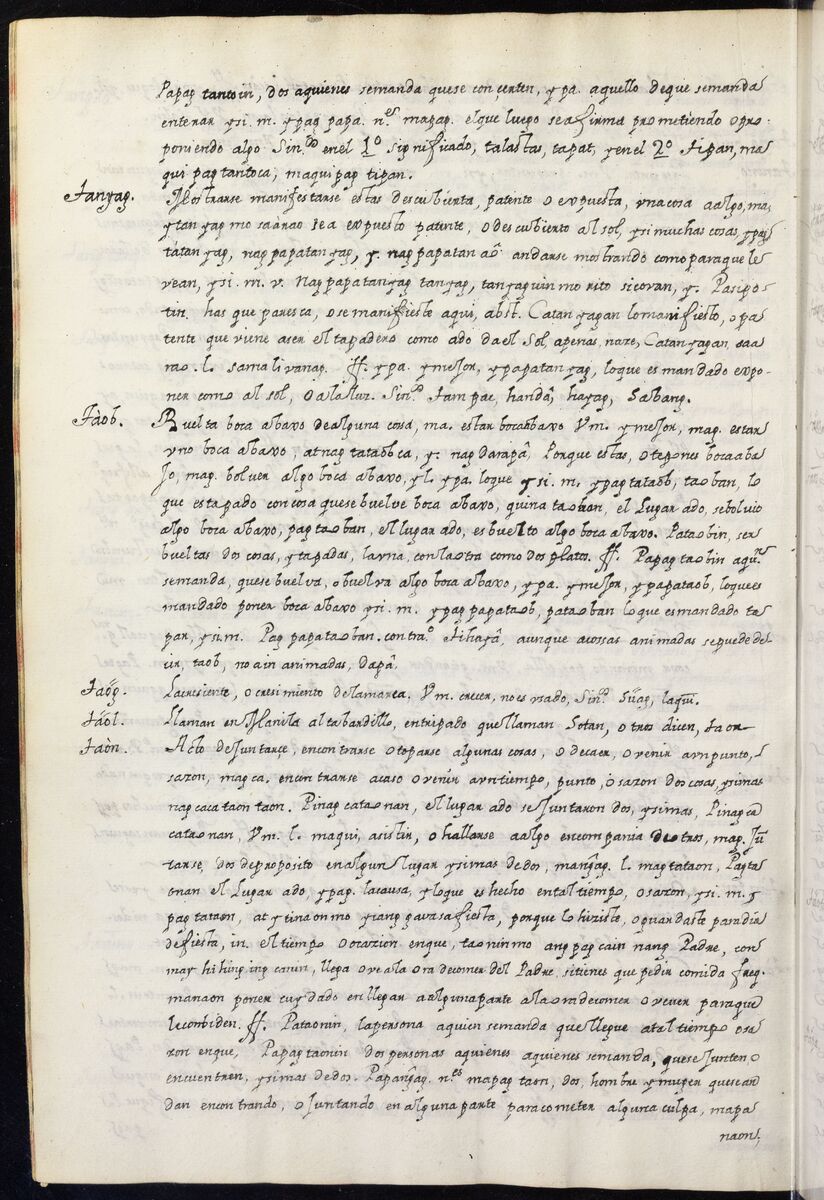 Papag tantoin, dos aquienes semanda quese conçerten, ypa. aquello deque semanda
enterar ysi. m. ypag papa. n.es mapag. elque luego seafirma prometiendo opro-
poniendo algo Sin.do enel 1º significado, talastas, tapat, yenel 2º tipan, ma
qui pag tantoca, maqui pag tipan.
Tanyag. Mostrarse manifestarse estas descubierta, patente o expuesta, vna cosa aalgo, ma,
ytanyag mo sa arao lea expuesto patente, o descubierto al sol, ysi muchas cosas, ypag
tátanyag, nag papatanyag, y. nag papatan aõ andarse mostrando como paraque le
vean, ysi. m. v. Nag papatanyag tanyag, tanyaguin mo rito si covan, y. Pasipo-
tin. has que paresca, o se manifieste aqui, abst. Catanyagan lo manifiesto, o pa
tente que viene aser el tapadero como ado da el Sol, apenas naze, Catanyagan saa
rao. l. samalivanag. ff. ypa. ymejor, ypapatanyag, loque es mandado expo-
ner como al sol, o alaluz. Sin.o tampac, handâ, hayag, Sabang.
Táob. Buelta boca abaxo dealguna cosa, ma. estar boca abaxo Vm. ymejor, mag. estar
vno boca abaxo, at nag tataob ca, y. nag darapâ, Porque estas, o te pones boca aba
Jo, mag. bolver algo boca abaxo, y l. ypa. loque ysi. m. ypag tataob, taoban, lo
que es tapado con cosa quese buelve boca abaxo, quina taoban, el Lugar ado, sebolvio
algo boca abaxo, pag taoban, el lugar ado, es buelto algo boca abaxo. Pataobin, ser
bueltas dos cosas, ytapadas, la vna, con la otra como dos platos. ff. Papag taobin aqn.es
semanda, quese buelva, o buelva algo boca abaxo, ypa. ymejor, ypapataob, loque es
mandado poner boca abaxo ysi. m. ypag papataob, pataoban lo que es mandado ta-
par, ysi. m. Pag papataoban. contra.o tihayâ, aunque acossas animadas sepuede de-
zir, taob, no a in animadas, dapâ.
Taog. La cresiente, o cresimiento dela marea, Vm. crecer, noes vsado, Sin.o Suag, laqui.
Taol. Llaman en Manila al tabardillo, entripado que llaman Sotan, otros dicen, taon
Taòn. Acto de Juntarçe, encontrarse otoparse algunas cosas, o decaer, o venir avn punto,
sazon, mag ca. encontrarse acaso o venir avn tiempo, punto, o sazon dos cosas, ysi mas
nag caca taon taon. Pinag cataonan, el lugar ado se Juntaron dos, ysi mas, Pinag ca
cataonan, Vm. l. maqui, asistir, o hallarse aalgo encompania de otros, mag. Jũ
tarse, dos deproposito en algun lugar ysi mas de dos, mangag. l. mag tataon, Pagta
onan el Lugar ado, ypag. la causa, y lo que es hecho en tal tiempo, o sazon, ysi. m. y
pag tataon, at ytinaon mo yiang gava sa fiesta, porque lo hiziste, o guardaste para dia
de fiesta, in. El tiempo o cazion en que, taonin mo ang pag cain nang Padre, con
may hihing ing canin, llega o ve ala ora decomer del Padre, si tienes que pedir comida freq.
manaon poner cuydado en llegar a alguna parte a la ora decomer o vever para que
le conbiden. ff. Pataonin, la persona aquien semanda que llegue atal tiempo o sa
zon en que, Papag taonin dos personas aquienes aquienes semanda, quese Junten, o
encuentren, ysi mas de dos. Papangag. n.es mapag taon, dos, hombre y muger quesean
dan encontrando, o Juntando en alguna parte para cometer alguna culpa, mapa
naon,